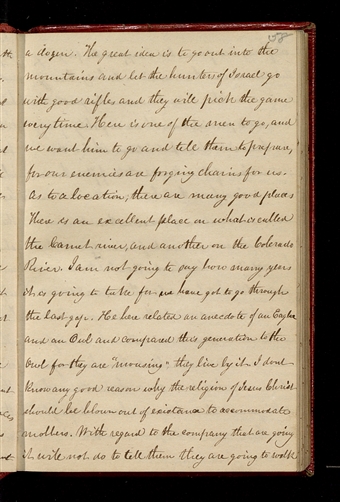 58
a dozen. The great idea is to go out into the
mountains and let the hunters of Israel go
with good rifles and they will pick the game
every time. Here is one of the men to go, and
we want him to go and tell them to prepare,
for our enemies are forging chains for us.
As to a location, there are many good places
There is an excellent place on what is called
the Camel river, and another on the Colorado
River. I am not going to say how many years
it is going to take for we have got to go through
the last gap. He here related an anecdote of an Eagle
and an Owl and compared this generation to the
Owl for they are "mousing" they live by it. I dont
know any good reason why the religion of Jesus Christ
should be blown out of existance to accommodate
mobbers. With regard to the company that are going
it will not do to tell them they are going to walk